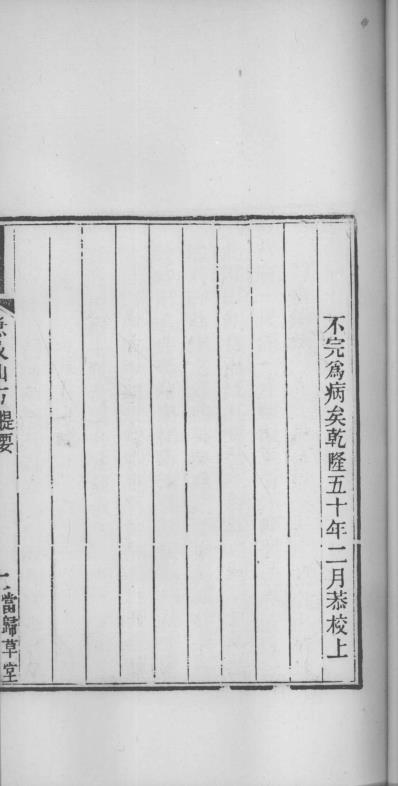 不完爲病矣乾隆五十年二月恭校上
仙方 提要
二 當歸草堂